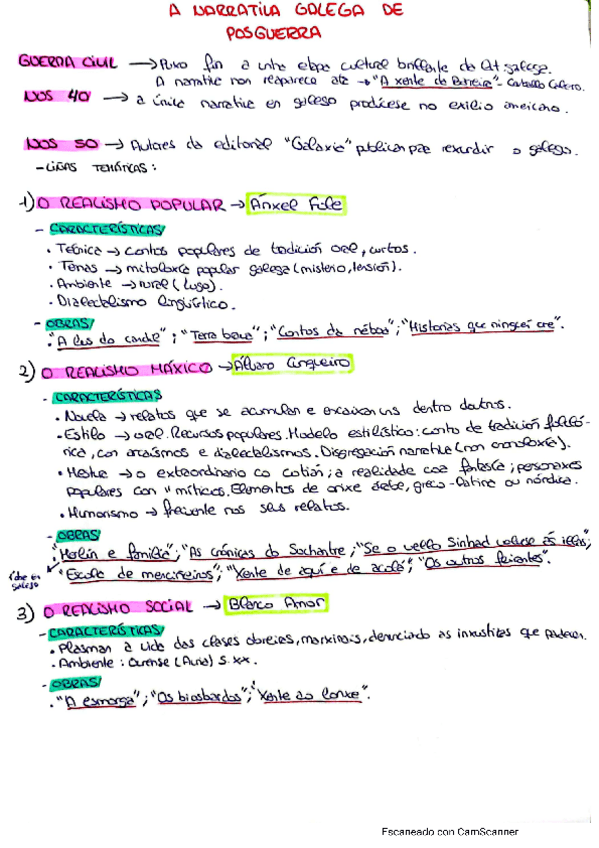 A NARRATIVA GALEGA DE
POSGUERRA
GUERRA CIVIL → Puxo fin a unha etapa cultural brillante da lit galega.
A narrativa non reaparece ata → "A xente da Barreira" - Carballo Calero.
NOS 40 → a única narrativa en galego prodúcese no exilio americano.
NOS 50 → Autores da editorial "Galaxia" publican pae rexurdir o galego.
- LIÑAS TEMÁTICAS:
1) O REALISMO POPULAR → Ánxel Fole
- CARACTERÍSTICAS
· Técnica → contos populares de tradición oral, curtos.
· Temas → mitoloxía popular galega (misterio, tensión).
· Ambiente → rural (Lugo).
· Dialectalismo lingüístico.
- OBRAS
· "Á lus do candil"; "Terra brava"; "Contos da néboa"; "Historias que ninguén cre".
2) O REALISMO MÁXICO → Álvaro Cunqueiro
- CARACTERÍSTICAS
· Novela → relatos que se acumulan e encaixan uns dentro doutros.
· Estilo → oral. Recursos populares. Modelo estilístico: conto de tradición folcló-
rica, con arcaísmos e dialectalismos. Disgregación narrativa (non cronoloxía).
· Mestura → o extraordinario co cotián; a realidade coa fantasía; personaxes
populares con " míticos. Elementos de orixe celta, greco-latina ou nórdica.
· Humorismo → frecuente nos seus relatos.
- OBRAS
"Merlín e familia"; "As crónicas do Sochantre; "Se o vello Sinbad volvese ás illas";
"Escola de menciñeiros"; "Xente de aquí e de acolá"; "Os outros feirantes".
galego
3) O REALISMO SOCIAL → Blanco Amor
- CARACTERÍSTICAS
· Plasman a vida das clases obreiras, marxinais, denunciado as inxustizas que padecen.
· Ambiente: Ourense (Auria) S. XX.
- OBRAS
· "A esmorga"; "Os biosbardos"; "Xente ao lonxe".
Escaneado con CamScanner